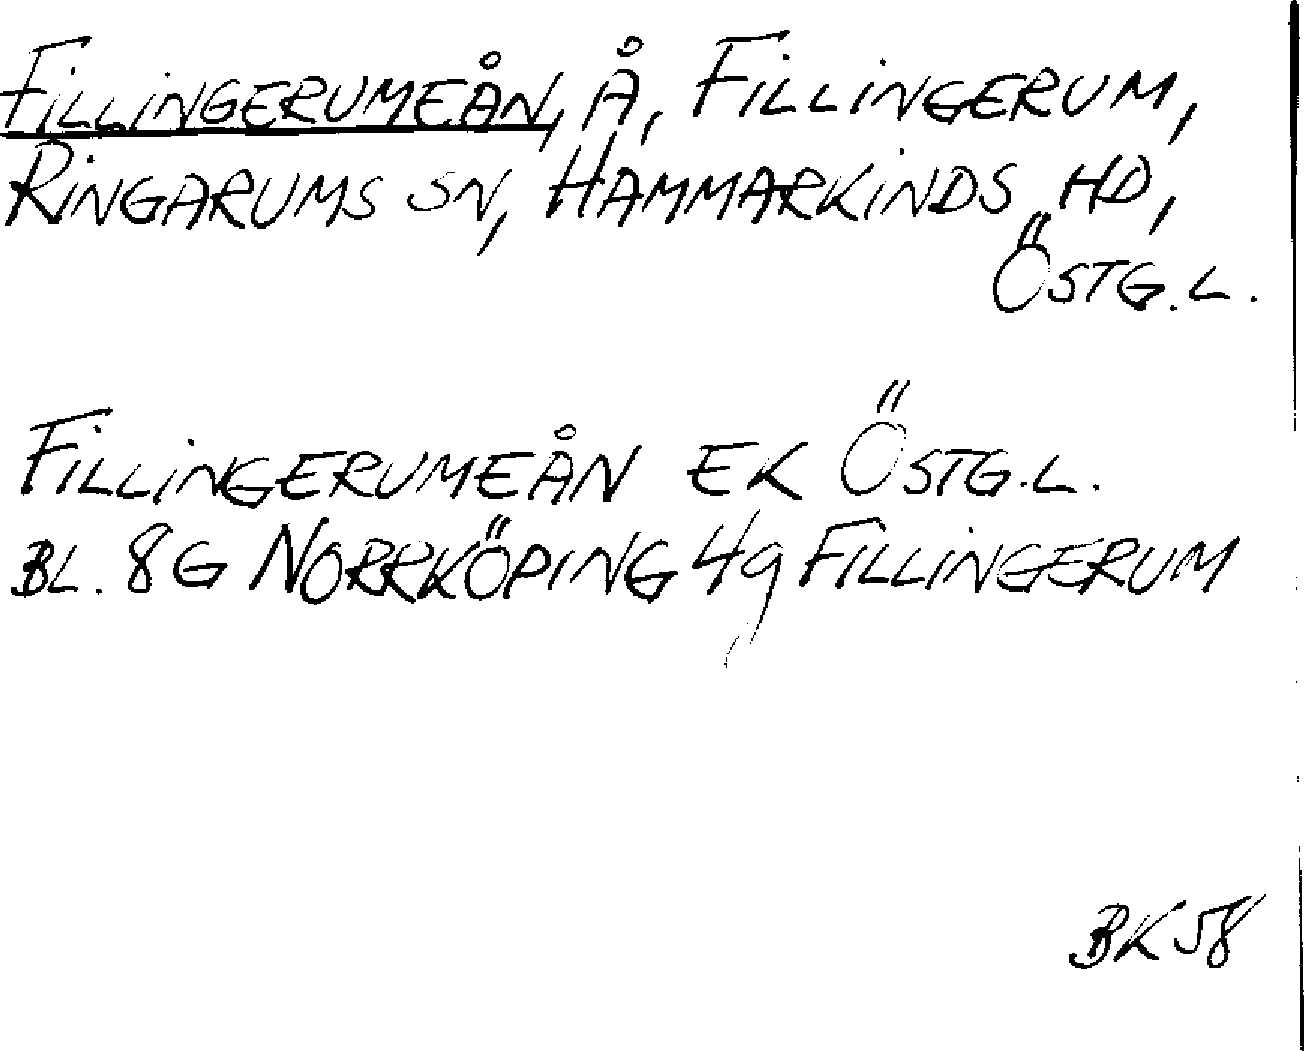 FILLINGERUMEÅN, Å, FILLINGERUM,
RINGARUMS SN, HAMMARKINDS HD,
ÖSTG.L.
FILLINGERUMEÅN EK ÖSTG.L.
BL. 8G NORRKÖPING 4g FILLINGERUM
BK 58